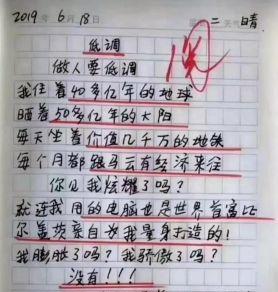 2019年6月18日 二 晴
阅
低调
做人要低调
我住着40多亿年的地球
晒着50多亿年的太阳
每天坐着价值几千万的地铁
每个月都跟马云有经济来往
你见我炫耀了吗?
就连我用的电脑也是世界首富比
尔盖茨亲自为我量身打造的!
我膨胀了吗?我骄傲了吗?
没有!!!